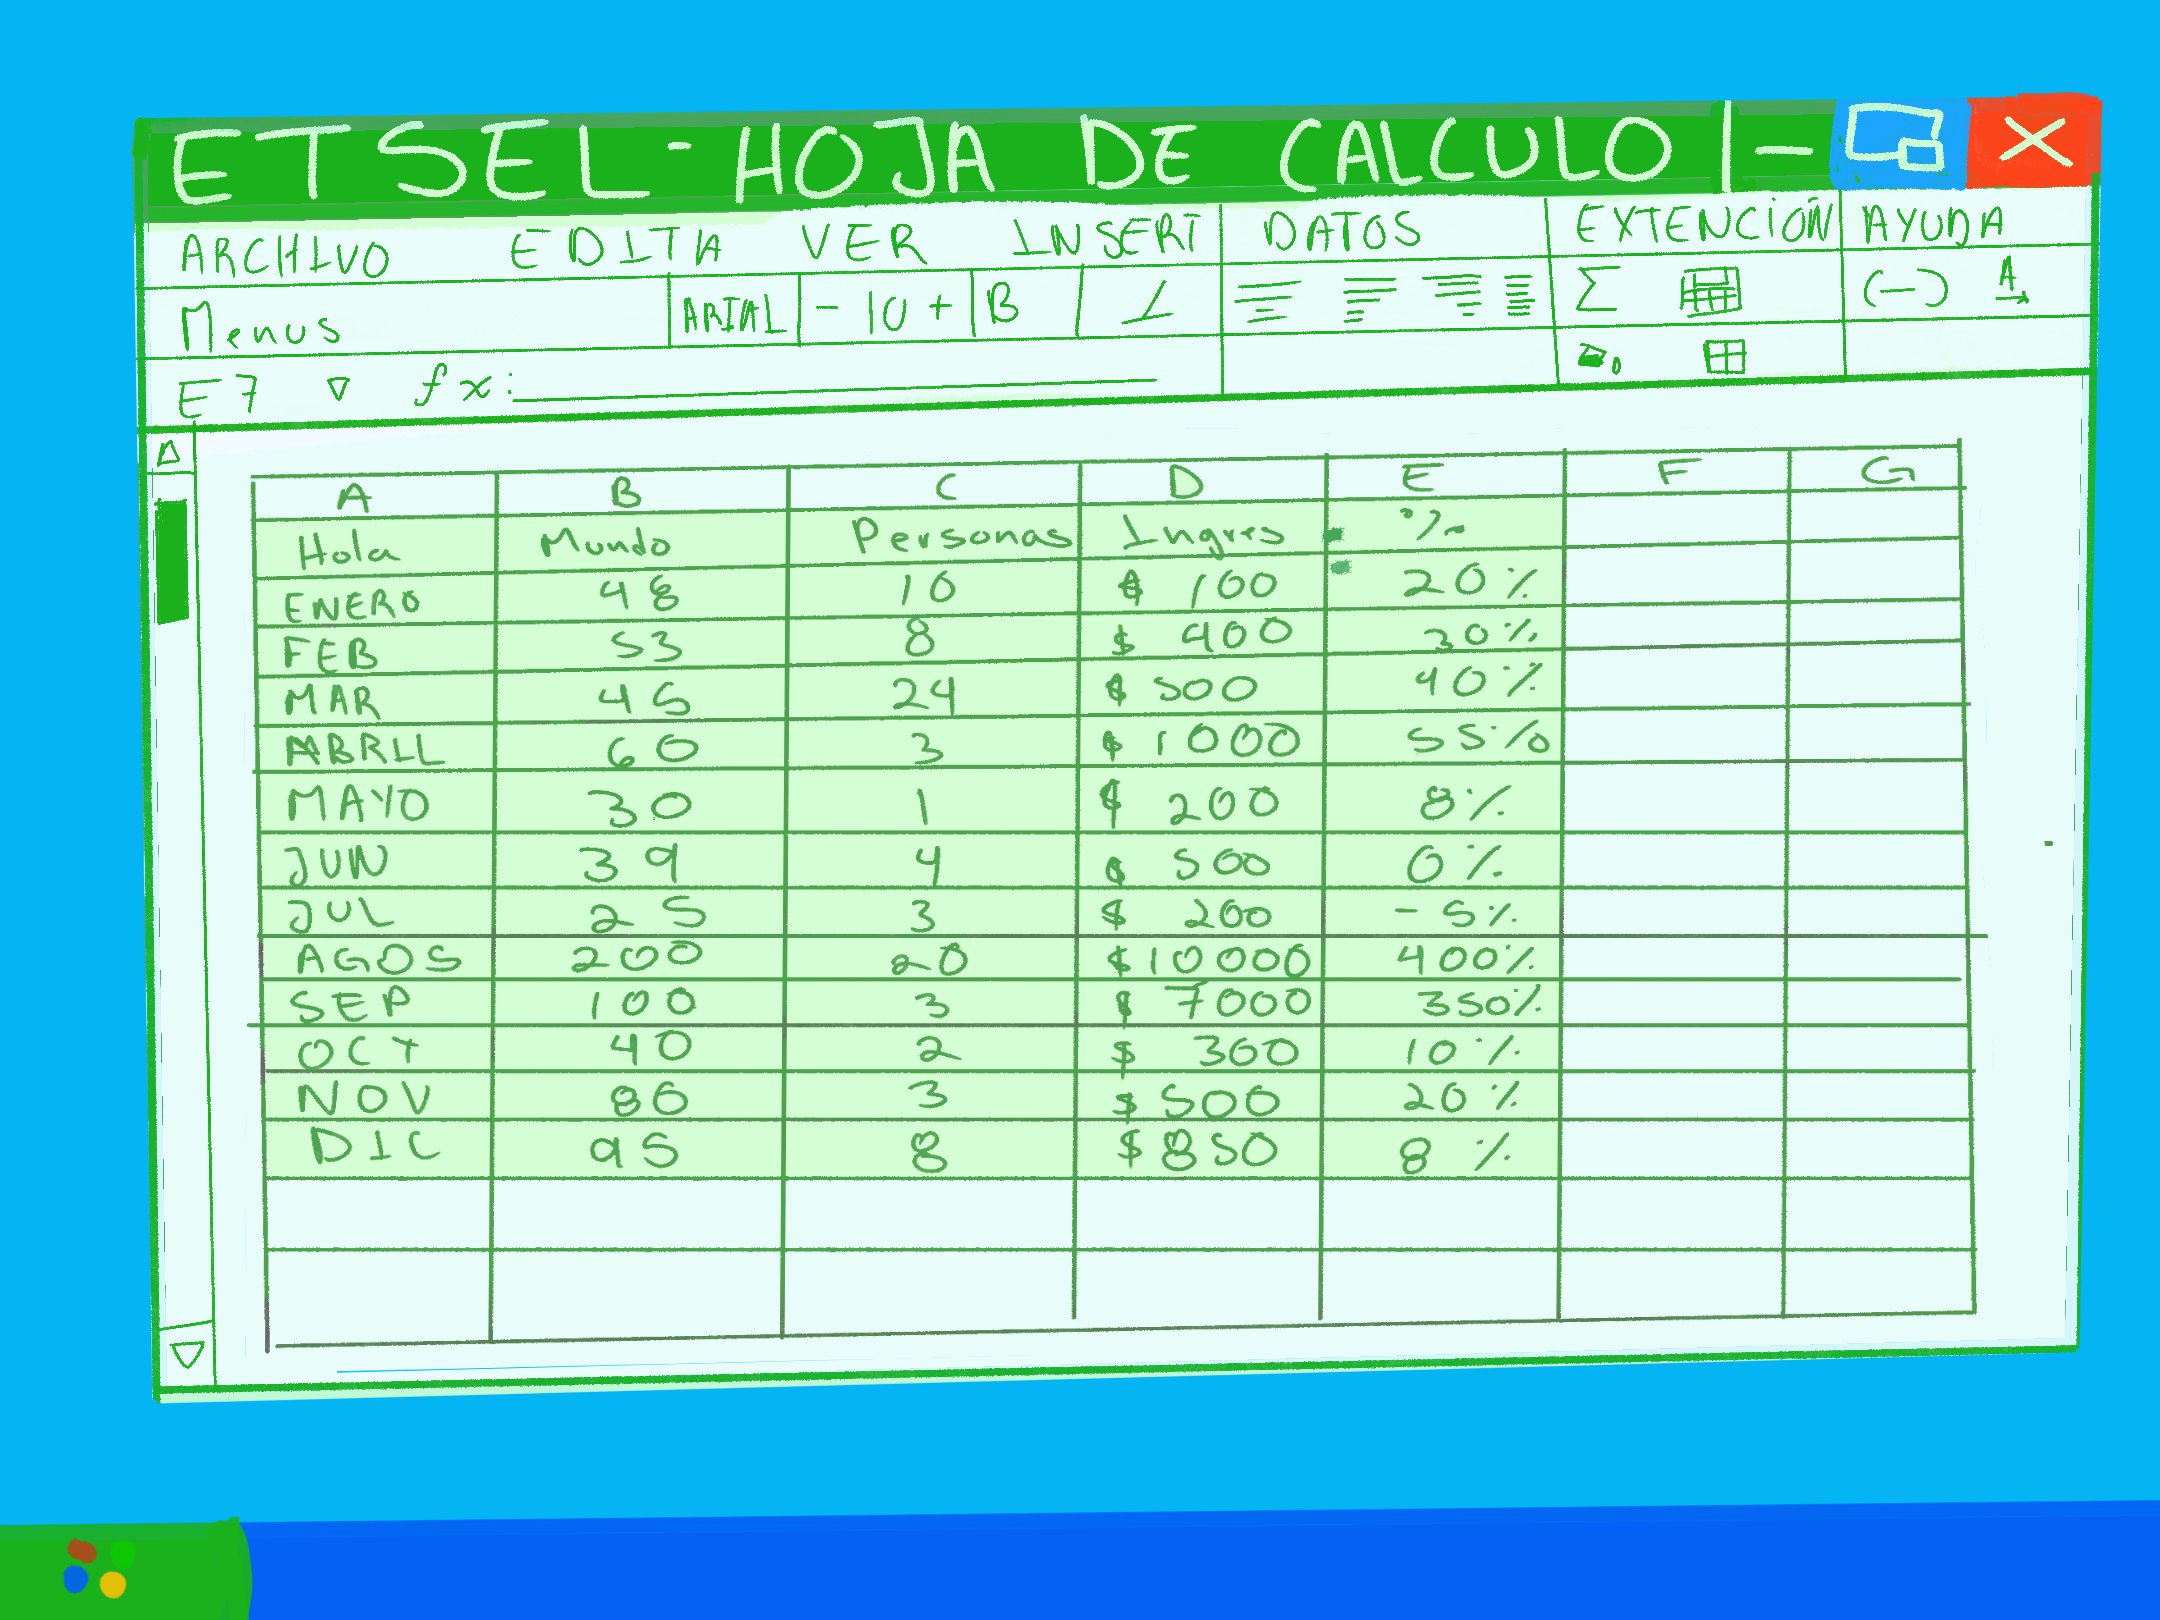 ETSEL-HOJA DE CALCULO | -
ARCHIVO EDITA VER INSERT DATOS EXTENCIÓN AYUDA
Menus ARIAL - 10 + B I Σ (-) A
E7 fx:
A B C D E F G
Hola Mundo Personas Ingres %
ENERO 48 10 $ 100 20%
FEB 53 8 $ 400 30%
MAR 45 24 $ 500 40%
ABRIL 60 3 $ 1000 55%
MAYO 30 1 $ 200 8%
JUN 39 4 $ 500 0%
JUL 25 3 $ 200 -5%
AGOS 200 20 $ 10000 400%
SEP 100 3 $ 7000 350%
OCT 40 2 $ 300 10%
NOV 80 3 $ 500 20%
DIC 95 8 $ 850 8%